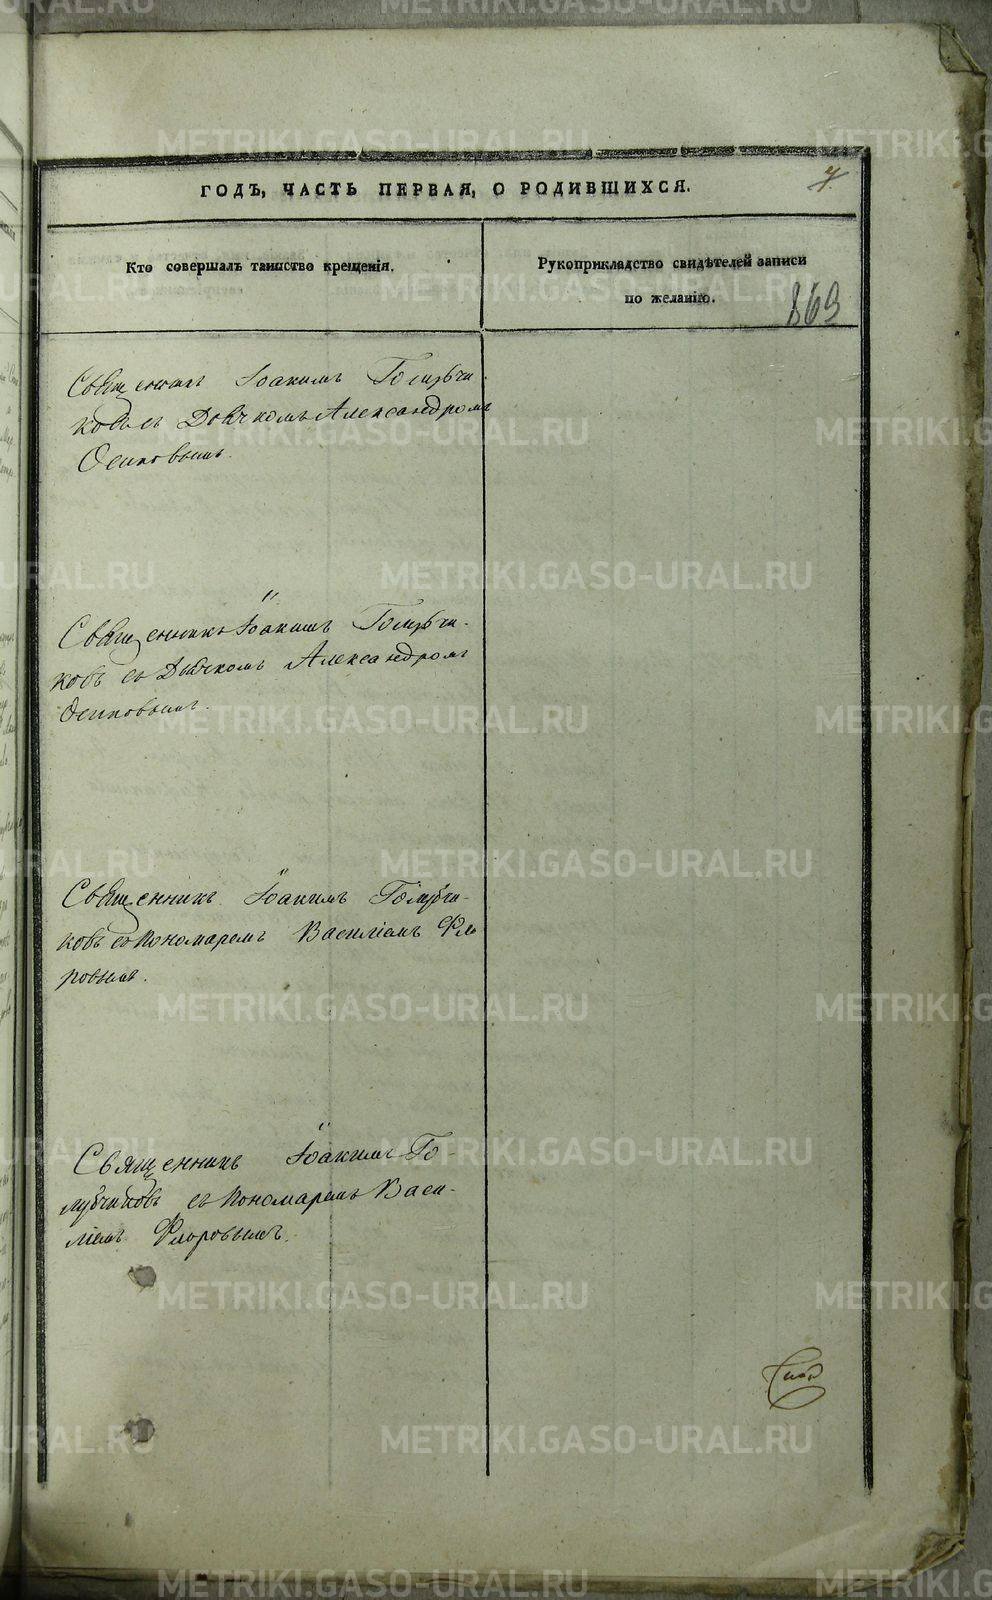 METRIKI.GASO-URAL.RU
ГОДЪ, ЧАСТЬ ПЕРВАЯ, О РОДИВШИХСЯ.
Кто совершалъ таинство крещенія.
Рукоприкладство свидѣтелей записи
по желанію.
869
Священникъ Іоакимъ Голубчи-
ковъ съ Дьячкомъ Александромъ
Осиповымъ.
Священникъ Іоакимъ Голубчи-
ковъ съ Дьячкомъ Александромъ
Осиповымъ.
Священникъ Іоакимъ Голубчи-
ковъ съ Пономаремъ Василіемъ Фло
ровымъ.
Священникъ Іоакимъ Го-
лубчиковъ съ Пономаремъ Васи-
ліемъ Флоровымъ.